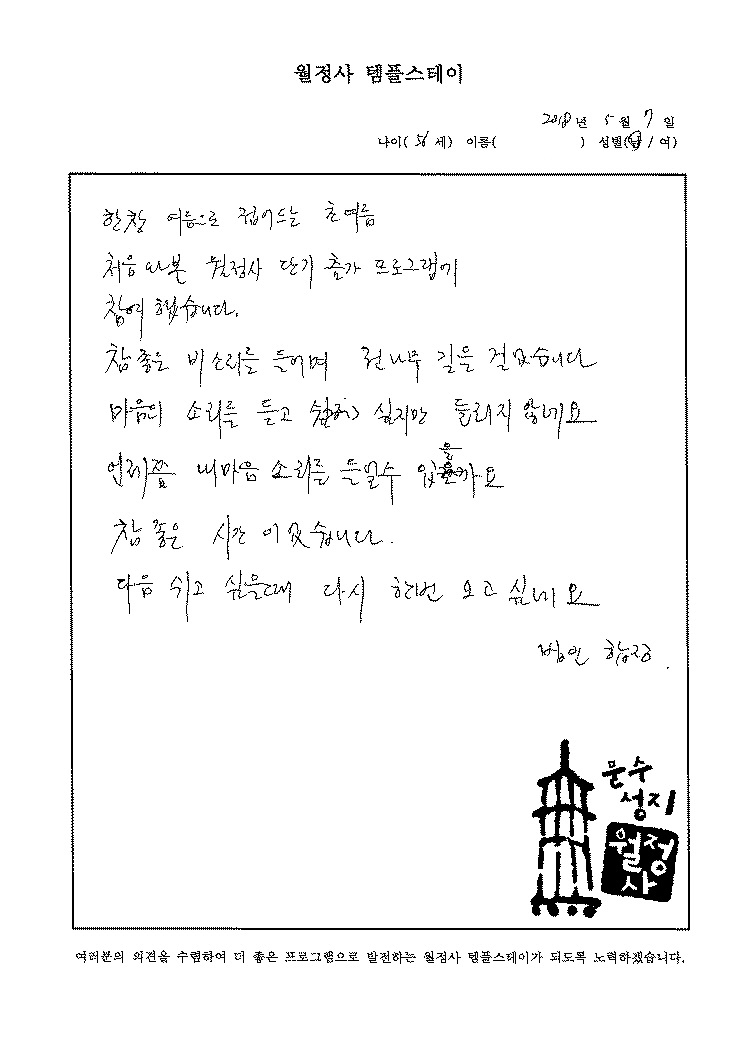 월정사 템플스테이
2018년 5월 7일
나이( 56 세) 이름( ) 성별(남 / 여)
한창 여름으로 접어드는 초여름
처음 와본 월정사 단기 출가 프로그램에
참여 했습니다.
참 좋은 비소리를 들으며 전나무 길을 걸었습니다
마음의 소리를 듣고 싶지만 들리지 않네요
언제쯤 내마음 소리를 들을수 있을까요
참 좋은 시간 이었습니다.
다음 쉬고 싶을때 다시 한번 오고 싶네요
법인 합장.
문수
성지
월정
사
여러분의 의견을 수렴하여 더 좋은 프로그램으로 발전하는 월정사 템플스테이가 되도록 노력하겠습니다.